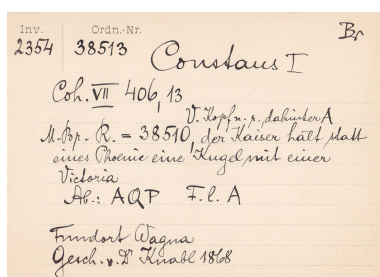 Inv. Ordn.-Nr. Br
2354 38513
Constans I
Coh. VII 406, 13
V. Kopf n. r., dahinter A
M. Bp. R. = 38510, der Kaiser hält statt
eines Phoenix eine Kugel mit einer
Victoria
Ab.: AQP F. l. A
Fundort Wagna
Gesch. v. Dr Knabl 1868